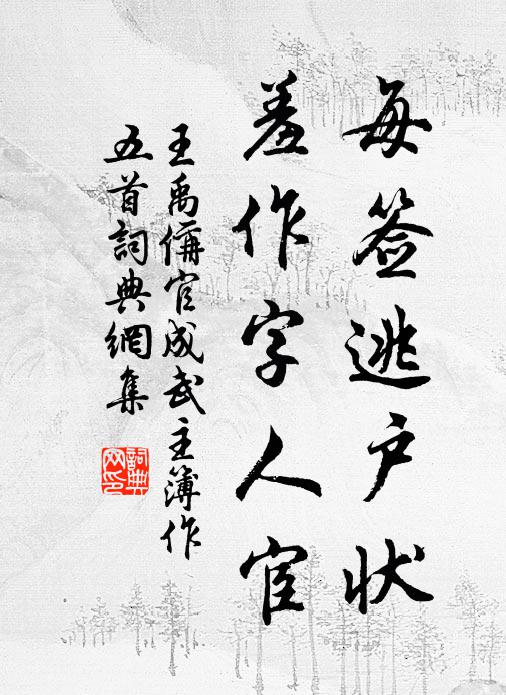 每签逃户状
羞作字人宦
王禹偁官成武主簿作
五首詞典網集
詞典网印